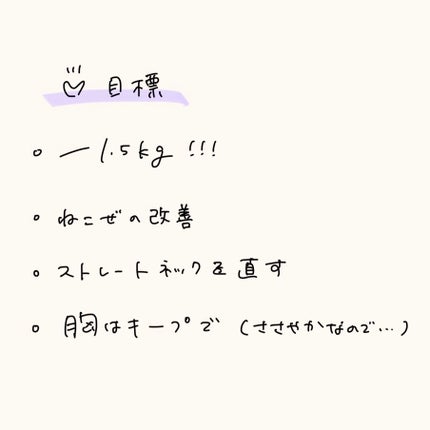 目標
ー1.5kg !!!
ねこぜの改善
ストレートネックを直す
胸はキープで (ささやかなので...)